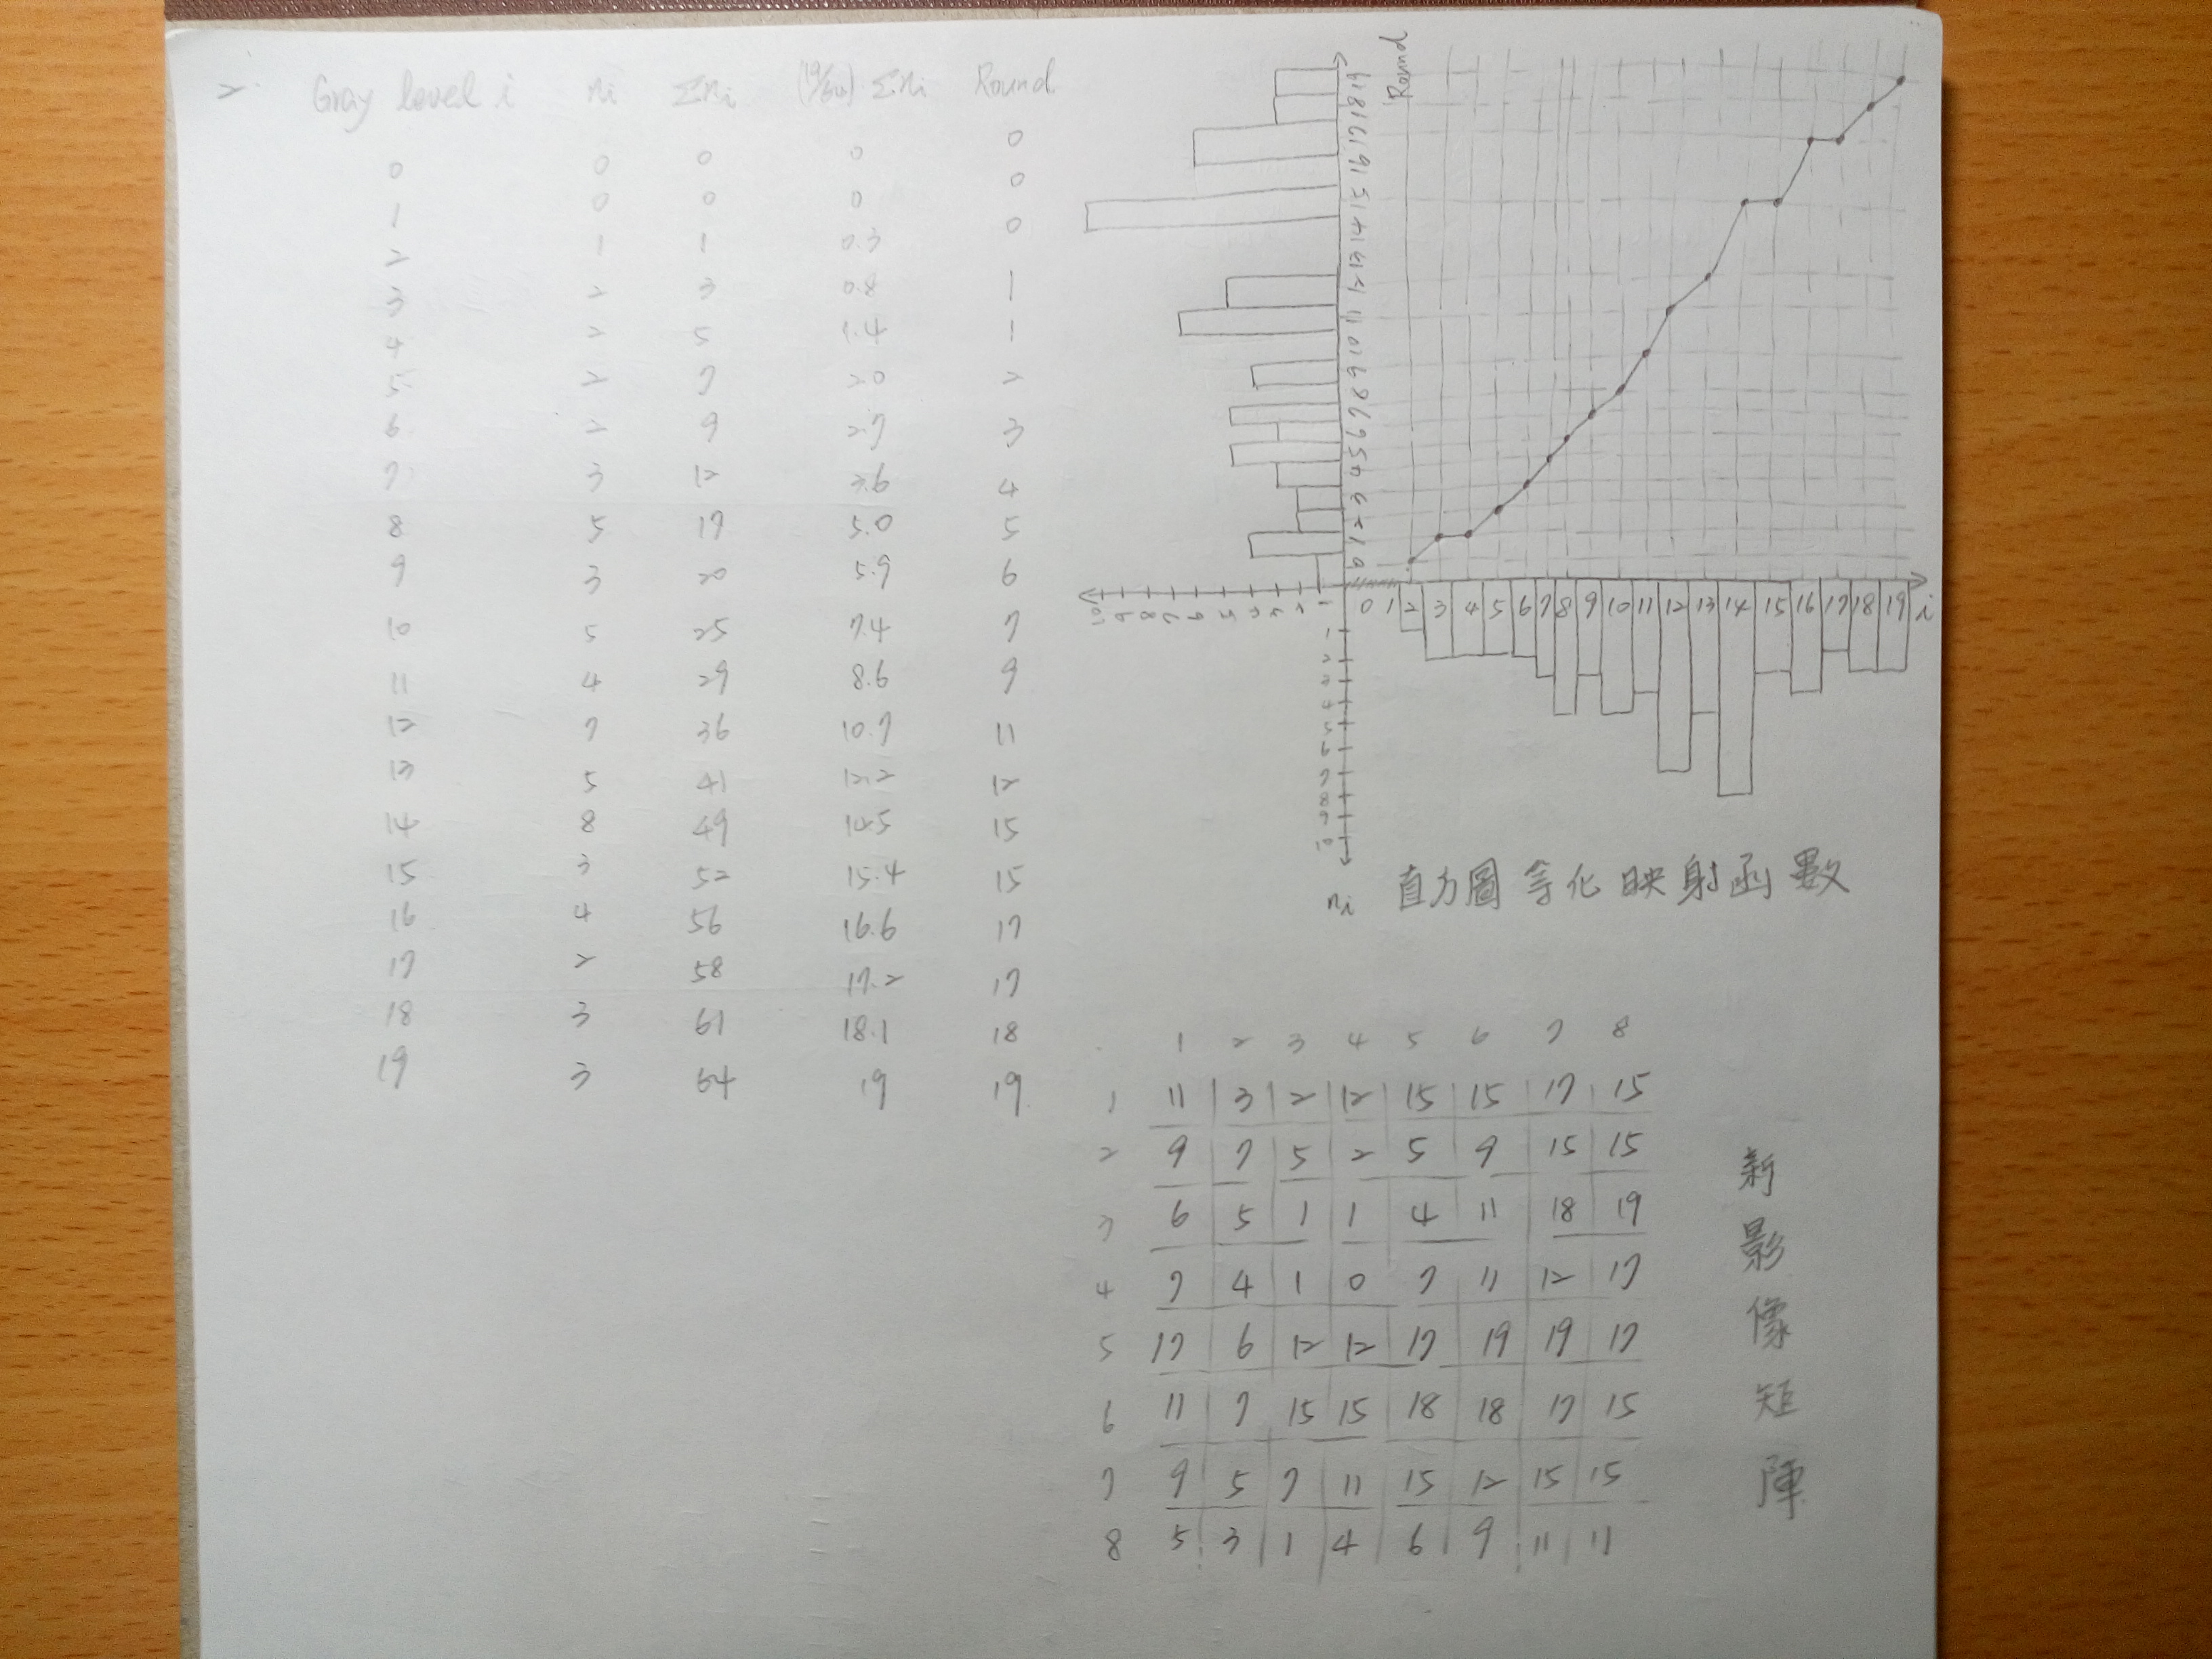 2. Gray level i ni Σni (19/64) Σni Round
0 0 0 0 0
1 0 0 0 0
2 1 1 0.3 0
3 2 3 0.8 1
4 2 5 1.4 1
5 2 7 2.0 2
6 2 9 2.7 3
7 3 12 3.6 4
8 5 17 5.0 5
9 3 20 5.9 6
10 5 25 7.4 7
11 4 29 8.6 9
12 7 36 10.7 11
13 5 41 12.2 12
14 8 49 14.5 15
15 3 52 15.4 15
16 4 56 16.6 17
17 2 58 17.2 17
18 3 61 18.1 18
19 3 64 19 19
Round
0 1 2 3 4 5 6 7 8 9 10 11 12 13 14 15 16 17 18 19
10 9 8 7 6 5 4 3 2 1
0 1 2 3 4 5 6 7 8 9 10 11 12 13 14 15 16 17 18 19 i
1
2
3
4
5
6
7
8
9
10
ni
直方圖等化映射函數
1 2 3 4 5 6 7 8
1 11 3 2 12 15 15 17 15
2 9 7 5 2 5 9 15 15
3 6 5 1 1 4 11 18 19
4 7 4 1 0 7 11 12 17
5 17 6 12 12 17 19 19 17
6 11 7 15 15 18 18 17 15
7 9 5 7 11 15 12 15 15
8 5 3 1 4 6 9 11 11
新影像矩陣